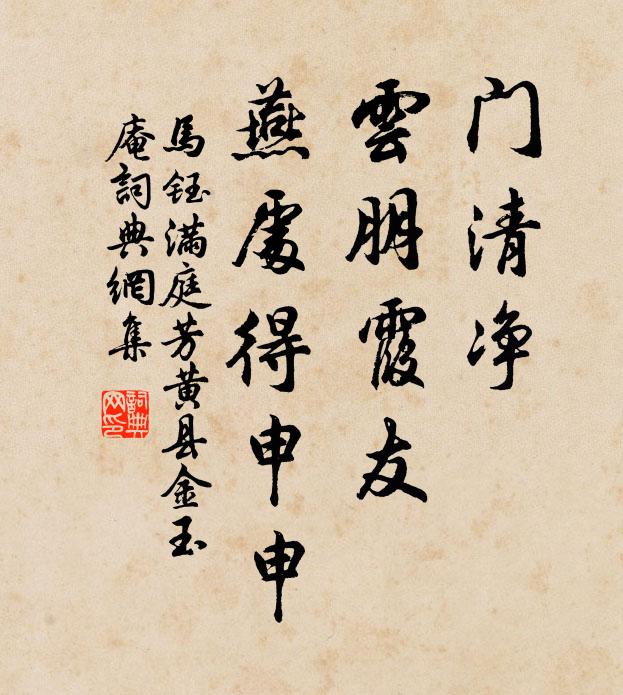 门清净
雲朋霞友
燕處得申申
馬鈺满庭芳黄县金玉
庵詞典網集
詞典
网印